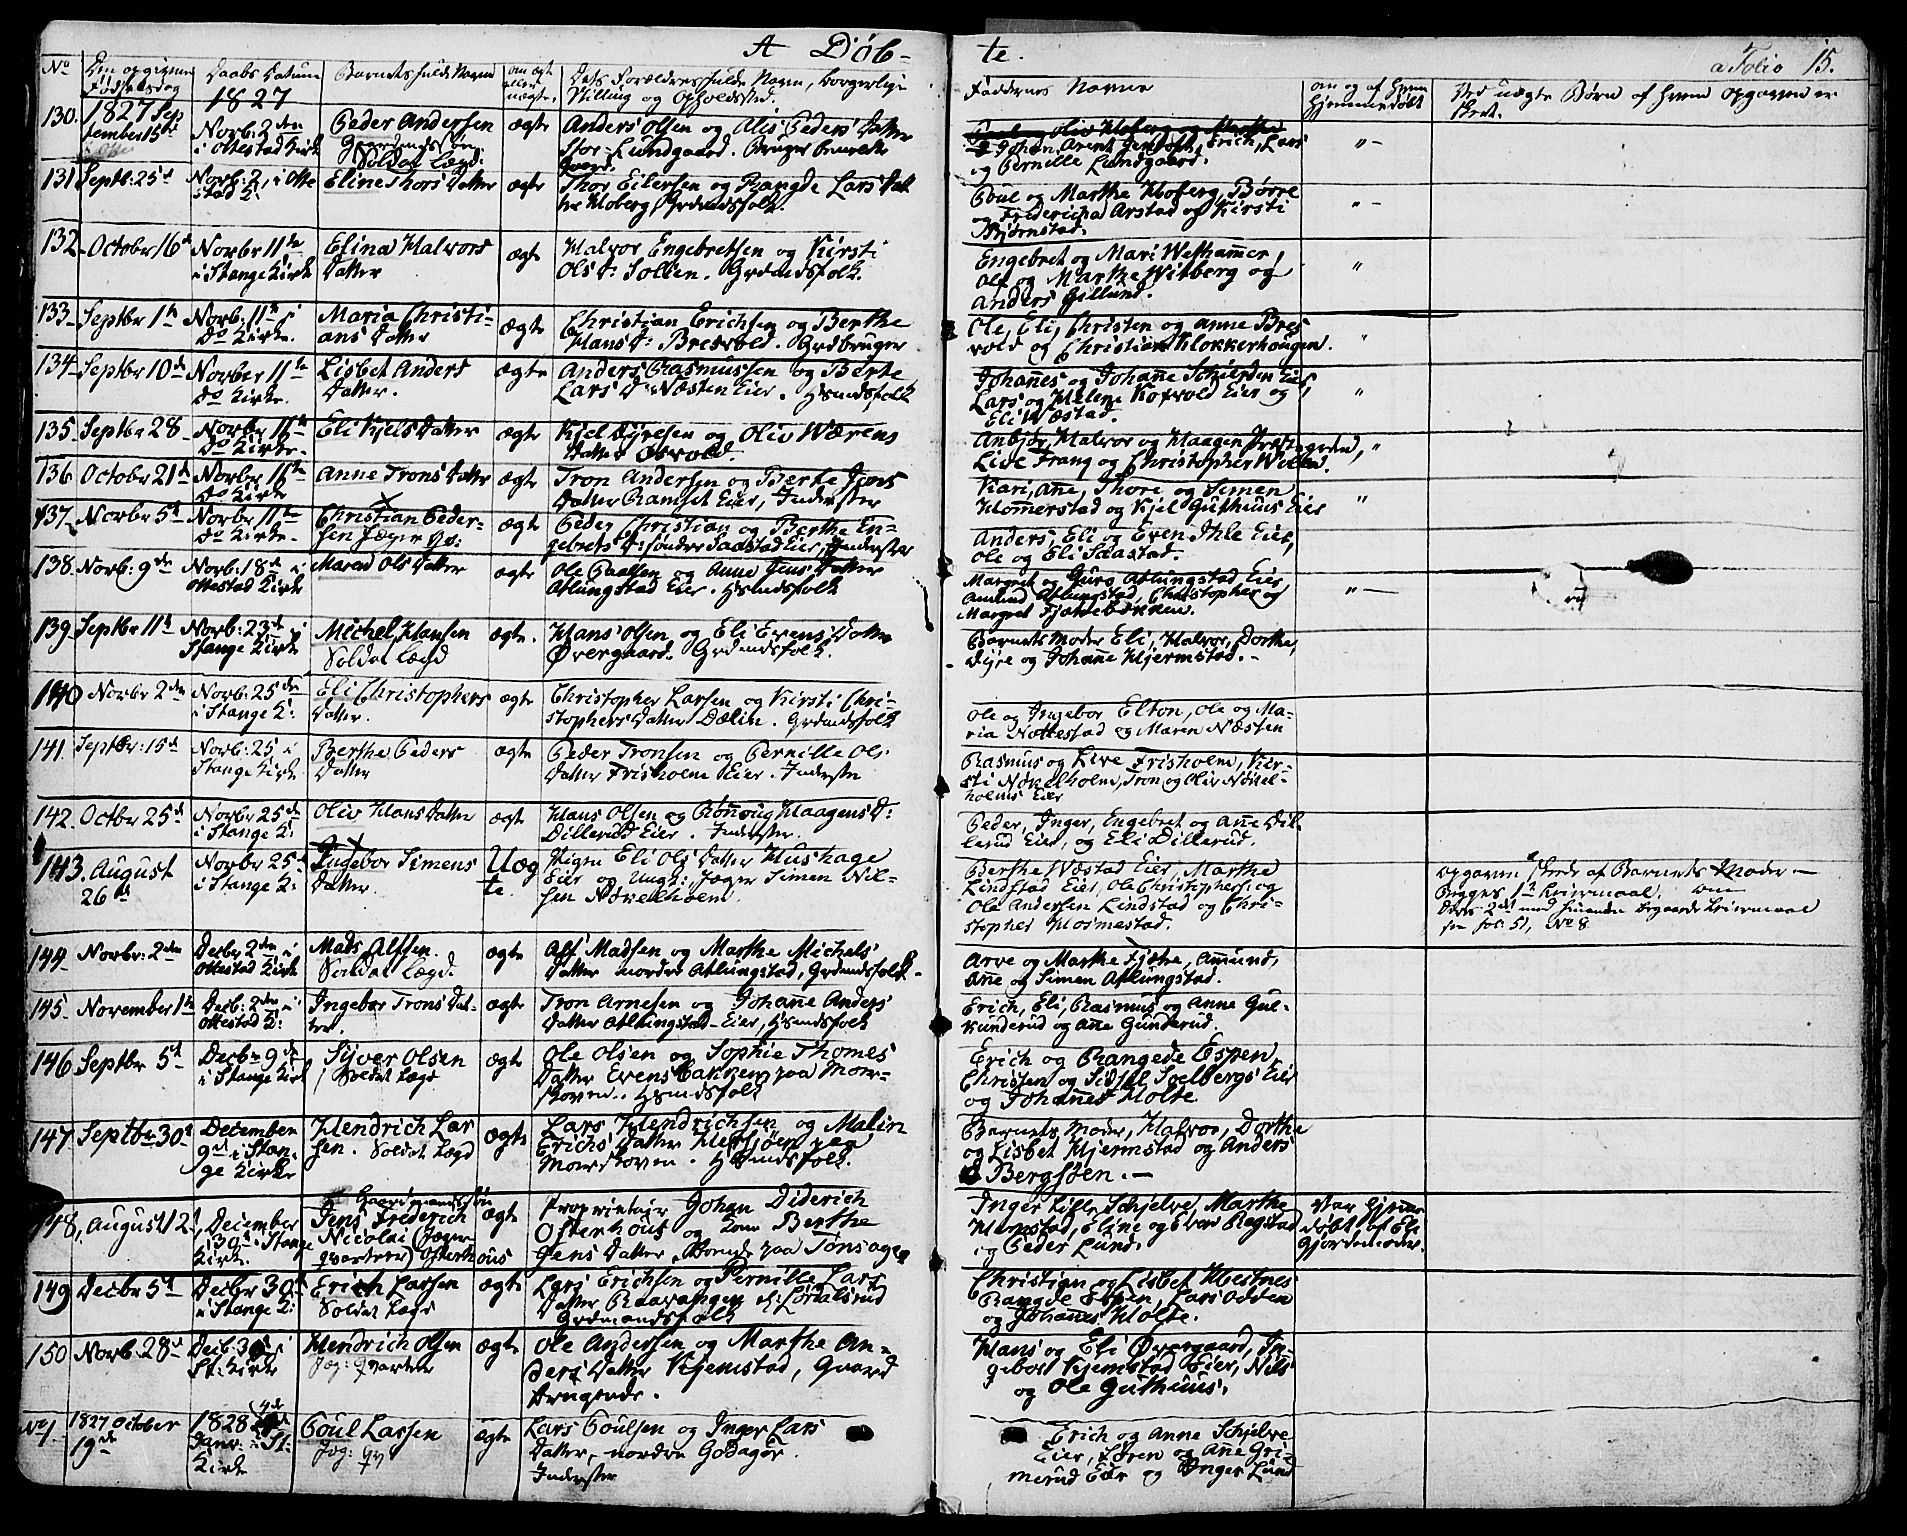 A Døb-
te.
a Folio 15.
No
Den opgivne Fødselsdag
Daabs Datum
Barnets fulde Navn
om ægt eller uægte.
Dets Forældres fulde Navn, borgerlige Stilling og Opholdssted.
Faddernes Navne
om og af hvem hjemmedøbt
Ved uægte Børn af hvem opgaven er skeet.
130.
1827 September 15de
1827
Norb: 2den i Ottestad Kirke
Peder Andersen
Soldat Lægd:
ægte
Anders Olsen og Alis Peders Datter
Lundgaard. Bruger
Johan Arent Erich, Lars
og Pernille Lundgaard.
"-
131
Septb: 25d
Norb: 2, i Ottestad K:
Eline Thors Datter
ægte
Thor Eilersen og Rangde Lars Datter Hoberg Grdmdsfolk.
Poul og Marthe Hoberg, Børre
og Fredericha Arstad og Kirsti
Bjørnstad.
"-
132
October 16d
Norbr 11te
i Stange Kirke
Elina Halvors
Datter
ægte
Halvor Engebretsen og Kirsti
Ols D: Sollien. Grdmdsfolk.
Engebret og Mari Westhammer,
Ole og Marthe Witberg og
Anders Gillund.
"
133
Septbr 1te
Norb. 11te i
Do Kirke.
Maria Christi-
ans Datter
ægte
Christian Erichsen og Berthe
Hans D: Bresvold. Grdbruger
Ole, Eli, Christen og Anne Bres
vold og Christian Klokkerhougen.
"
134
Septbr 10de
Norbr 11te
Do Kirke.
Lisbet Anders
Datter.
ægte
Anders Rasmussen og Berte
Lars D: Næsten Eier. Hsmdsfolk
Johannes og Johanne Eier,
Lars og Helene Kofvold Eier og
Eli Wæstad.
"
135
Septbr 28
Norbr 11te
Do Kirke.
Eli Kjels Datter
ægte
Kjel Dyresen og Oliv Wærens
Datter Osvold.
Anbjør, Halvor og Haagen
Live Frang og Christopher
"
136
October 21d
Norbr 11te
Do Kirke
Anne Trons Datter
ægte
Tron Andersen og Berte Jens
Datter Ramset Eier, Inderster
Kari, Ane, Thore og Simen
Homerstad og Kjel Guthuus Eier
"
137
Norbr 5d
Norbr 11te
Do Kirke.
Christian Peder-
sen Jæger Qv:
ægte
Peder Christian og Berthe En-
gebrets D: søndre Saastad Eier, Inderster
Anders, Eli og Even Ihle Eier,
Ole og Eli Saastad.
138
Norb: 9de
Norb: 18d i
Ottestad Kirke
Maren Ols Datter
ægte
Ole Paalsen og Anne Jens Datter
Atlungstad Eier. Hsmdsfolk
Margret og Guro Atlungstad Eier,
Amund Atlungstad, Christopher og
Margret Fjæstebækken.
"-
139
Septbr 11d
Norb: 23de i
Stange Kirke
Michel Hansen
Soldat Lægd
ægte.
Hans Olsen og Eli Evens Datter
Øvergaard. Grdmdsfolk.
Barnets Moder Eli, Halvor, Dorthe,
Dyre og Johanne Hjermstad.-
140
Norbr 2den
Norb: 25de
i Stange K:
Eli Christophers
Datter.
ægte
Christopher Larsen og Kirsti Chri-
stophers Datter Dælin. Grdmdsfolk
Ole og Ingebor Elton, Ole og Ma-
ria Nottestad og Maren Næsten
141
Septbr: 15d
Norb: 25 i
Stange Kirke
Berthe Peders
Datter
ægte
Peder Tronsen og Pernille Ols
Datter Frisholm Eier. Inderster
Rasmus og Live Frisholm, Kir-
sti Nøkelholm, Tron og Oliv Nøkel-
holms Eier
142
Octbr 25d
Norbr 25de
i Stange K:
Oliv Hans Datter
ægte
Hans Olsen og Rønnoug Haagens D:
Dillerud Eier. Inderster.
Peder, Inger, Engebret og Anne Dil-
lerud Eier, og Eli Dillerud.
143.
August
26de
Norbr 25d
i Stange K:
Ingebor Simens
Datter
Uæg
te.
Pigen Eli Ols Datter Hushage
Eier og Ungk: Jæger Simen Nil-
sen Nøkelholm.
Berthe Wæstad Eier, Marthe
Lindstad Eier, Ole Christophers: og
Ole Andersen Lindstad og Chri-
stopher Hosmestad.
Opgaven skede af Barnets Moder
Begges 1te Leiermaal.
see fol: 51, No 8.
144
Norbr: 2den
Decbr 2den i
Ottestad Kirke
Mads Alfsen.
Soldat Lægd.
ægte
Alf Madsen og Marthe Michels
Datter nordre Atlungstad, Grdmdsfolk.
Arve og Marthe Fjetre, Amund,
Ane og Simen Atlungstad.
145.
November 1te
Decb: 2den i
Ottestad K:
Ingebor Trons Dat-
ter.
ægte
Tron Arnesen og Johanne Anders
Datter Atlungstad Eier, Hsmdsfolk
Erich, Eli, Rasmus og Anne Gul-
kunderud og Ane Gunderud.
146
Septbr 5d
Decbr 9de
i Stange Kirke
Syver Olsen
Soldat Lægd
ægte
Ole Olsen og Sophie Thomes
Datter Evensbakken paa Mor-
skoven. Hsmdsfolk
Erich og Rangede Espen,
Christen og Sidsel Solbergs Eier
og Johannes Holte.
147
Septbr 30d
December
9de i Stan-
ge Kirke
Hendrich Lar
sen. Soldat Lægd
ægte
Lars Hendrichsen og Malin
Erichs Datter Hersjøen paa
Morskoven. Hsmdsfolk.
Barnets Moder, Halvor, Dorthe
og Lisbet Hjermstad og Anders
Bergsøen.-
148,
August 12
December
30d i Stange
Kirke.
Gaardmandssøn
Jens Frederich
Nicolai (Jæger
qvarteer) Osterhous
ægte
Proprietair Johan Diderich
Osterhous og Kone Berthe
Jens Datter, boende paa Tønsagen
Inger Lille Schjelve, Marthe
Hemstad, Eline og Even Rogstad
og Peder Lund.
Var hjemme
døbt af Eli
Gjordemoder.
149
Decbr 5d
Decbr 30d
i Stange K:
Erich Larsen
Soldat Lægd
ægte
Lars Erichsen og Pernille Lars
Datter, Raavangen
Grdmandsfolk
Christian og Lisbet Hestnes
Rangde Espen, Lars Odden
og Johannes Holte.
150
Norb: 28d
Decb: 30 i
St: Kirke
Hendrich Olsen
Jæg: Qvarteer
ægte
Ole Andersen og Marthe An-
ders Datter Kjemstad, Gaard
brugende.
Hans og Eli Øvergaard, In-
gebor Kjemstad Eier, Nils
og Ole Guthuus,
No 1.
1827 October
19de
1828
Janr: i St:
Kirke
Poul Larsen
Jæg: Qv
ægte
Lars Poulsen og Inger Lars
Datter, nordre Godager.
Inderster
Erich og Anne Schjelve
Eier, Søren og Ane Gri-
merud Eier og Inger Lund